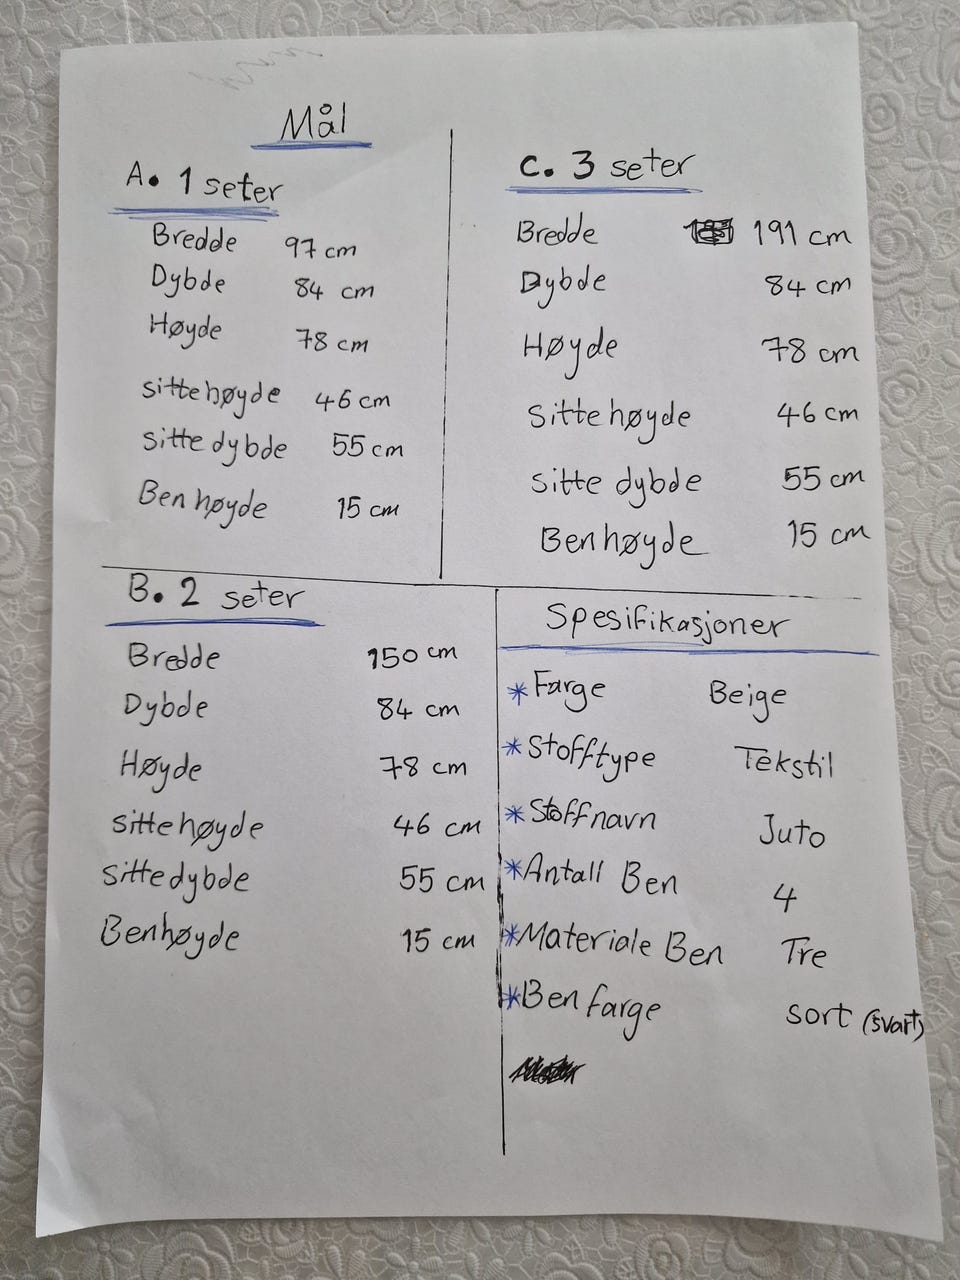 Mål
A. 1 seter
Bredde 97 cm
Dybde 84 cm
Høyde 78 cm
sittehøyde 46 cm
sitte dybde 55 cm
Ben høyde 15 cm
C. 3 seter
Bredde 191 cm
Dybde 84 cm
Høyde 78 cm
Sitte høyde 46 cm
sitte dybde 55 cm
Benhøyde 15 cm
B. 2 seter
Bredde 150 cm
Dybde 84 cm
Høyde 78 cm
sittehøyde 46 cm
sittedybde 55 cm
Benhøyde 15 cm
Spesifikasjoner
* Farge Beige
* Stofftype Tekstil
* Stoffnavn Juto
* Antall Ben 4
* Materiale Ben Tre
* Ben farge sort (svart)